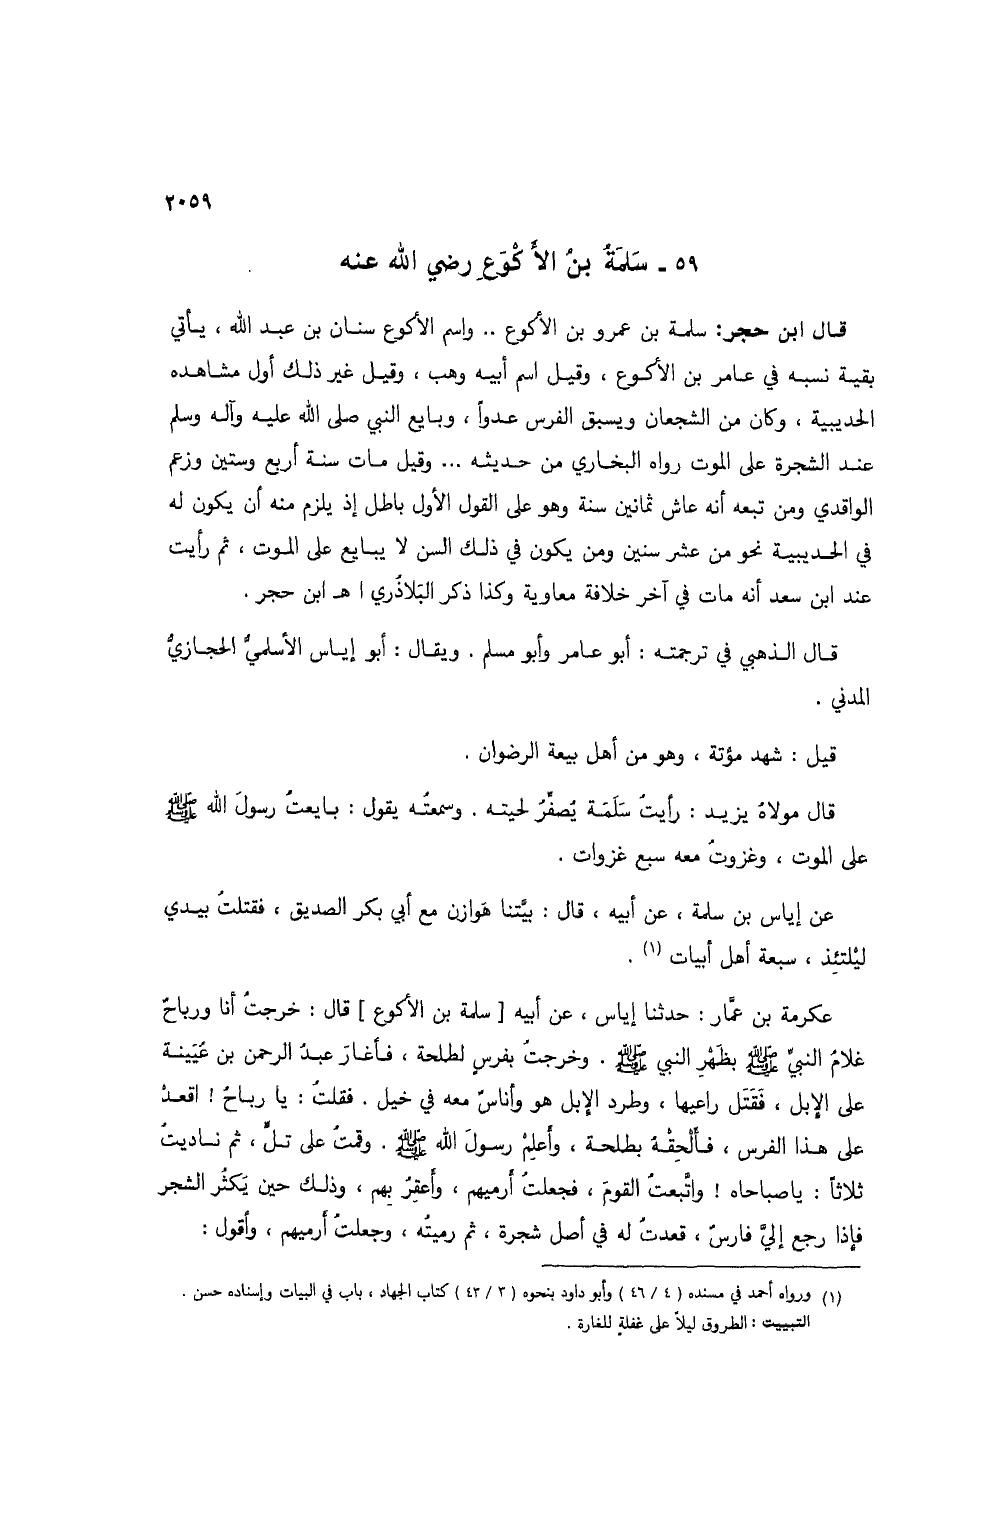 ٢٠٥٩
٥٩ ـ سَلَمَةُ بنُ الأَكْوَعِ رضي الله عنه
قـال ابن حجر: سلمة بن عمرو بن الأكوع .. واسم الأكوع سنـان بن عبـد الله ، يـأتي
بقيـة نسبـه في عـامر بن الأكـوع ، وقيـل اسم أبيـه وهب ، وقيـل غير ذلـك أول مشـاهـده
الحديبية ، وكان من الشجعان ويسبق الفرس عـدواً ، وبـايع النبي صلى الله عليـه وآلـه وسلم
عنـد الشجرة على الموت رواه البخـاري من حـديثـه ... وقيل مـات سنـة أربع وستين وزعم
الواقدي ومن تبعه أنه عاش ثمانين سنة وهو على القول الأول باطل إذ يلزم منه أن يكون له
في الحـديبيـة نحو من عشر سنين ومن يكون في ذلـك السن لا يبـايع على المـوت ، ثم رأيت
عند ابن سعد أنه مات في آخر خلافة معاوية وكذا ذكر البَلاذُري ا هـ ابن حجر .
قـال الـذهبي في ترجمتـه : أبو عـامر وأبو مسلم . ويقـال : أبو إيـاس الأسلميُّ الحجـازيُّ
المدني .
قيل : شهد مؤتة ، وهو من أهل بيعة الرضوان .
قال مولاهُ يزيـد : رأيتُ سَلَمَـة يُصفِّرُ لحيتـه . وسمعتُـه يقول : بـايعتُ رسولَ الله ﷺ
على الموت ، وغزوتُ معه سبع غزوات .
عن إياس بن سلمة ، عن أبيه ، قال : بيَّتنا هَوازن مع أبي بكر الصديق ، فقتلتُ بيـدي
ليْلتئِذ ، سبعة أهل أبيات (١) .
عكرمة بن عمَّار : حدثنا إياس ، عن أبيه [ سلمة بن الأكوع ] قال : خرجتُ أنا ورباحٌ
غلامُ النبيِّ ﷺ بظَهْرِ النبي ﷺ . وخرجتُ بفرسٍ لطلحة ، فـأغـارَ عبـدُ الرحمن بن عُيَينـة
على الإبل ، فَقَتَل راعيها ، وطرد الإبل هو وأناسٌ معه في خيل . فقلتُ : يا رباحُ ! اقعـدْ
على هـذا الفرس ، فـأَلْحِقْـهُ بطلحـة ، وأَعلِمْ رسـولَ الله ﷺ . وقمتُ على تـلٍّ ، ثم نـاديتُ
ثلاثاً : ياصباحاه ! واتَّبعتُ القومَ ، فجعلتُ أرميهم ، وأَعقِرُ بهم ، وذلـك حين يَكثُر الشجر
فإذا رجع إليَّ فارسٌ ، قعدتُ له في أصل شجرة ، ثم رميتُه ، وجعلتُ أرميهم ، وأقول :
(١) ورواه أحمد في مسنده ( ٤ / ٤٦ ) وأبو داود بنحوه ( ٣ / ٤٣ ) كتاب الجهاد ، باب في البيات وإسناده حسن .
التبييت : الطروق ليلاً على غفلةٍ للغارة .